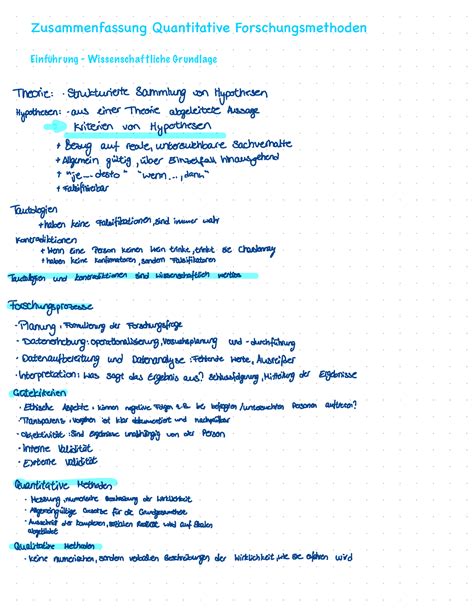 Zusammenfassung Quantitative Forschungsmethoden
Einführung - Wissenschaftliche Grundlage
Theorie: · Strukturierte Sammlung von Hypothesen
Hypothesen: · aus einer Theorie abgeleitete Aussage
Kriterien von Hypothesen
+ Bezug auf reale, untersuchbare Sachverhalte
+ Allgemein gültig, über Einzelfall hinausgehend
+ "je ... desto" "wenn ..., dann"
+ Falsifizierbar
Tautologien
+ haben keine Falsifikatoren, sind immer wahr
Kontradiktionen
+ Wenn eine Person keinen Wein trinkt, trinkt sie Chardonnay
+ haben keine Konfirmatoren, sondern Falsifikatoren
Tautologien und Kontradiktionen sind wissenschaftlich wertlos
Forschungsprozesse
· Planung, Formulierung der Forschungsfrage
· Datenerhebung: Operationalisierung, Versuchsplanung und -durchführung
· Datenaufbereitung und Datenanalyse: Fehlende Werte, Ausreißer
· Interpretation: Was sagt das Ergebnis aus? Schlussfolgerung, Mitteilung der Ergebnisse
Gütekriterien
· Ethische Aspekte: können negative Folgen z.B. bei befragten/untersuchten Personen auftreten?
· Transparenz: Vorgehen ist klar dokumentiert und nachprüfbar
· Objektivität: Sind Ergebnisse unabhängig von der Person
· Interne Validität
· Externe Validität
Quantitative Methoden
· Messung, numerische Beschreibung der Wirklichkeit
· Allgemeingültige Gesetze für die Grundgesamtheit
· Ausschnitt der komplexen, sozialen Realität wird auf Skalen
abgebildet
Qualitative Methoden
· Keine numerischen, sondern verbalen Beschreibungen der Wirklichkeit, wie sie erfahren wird